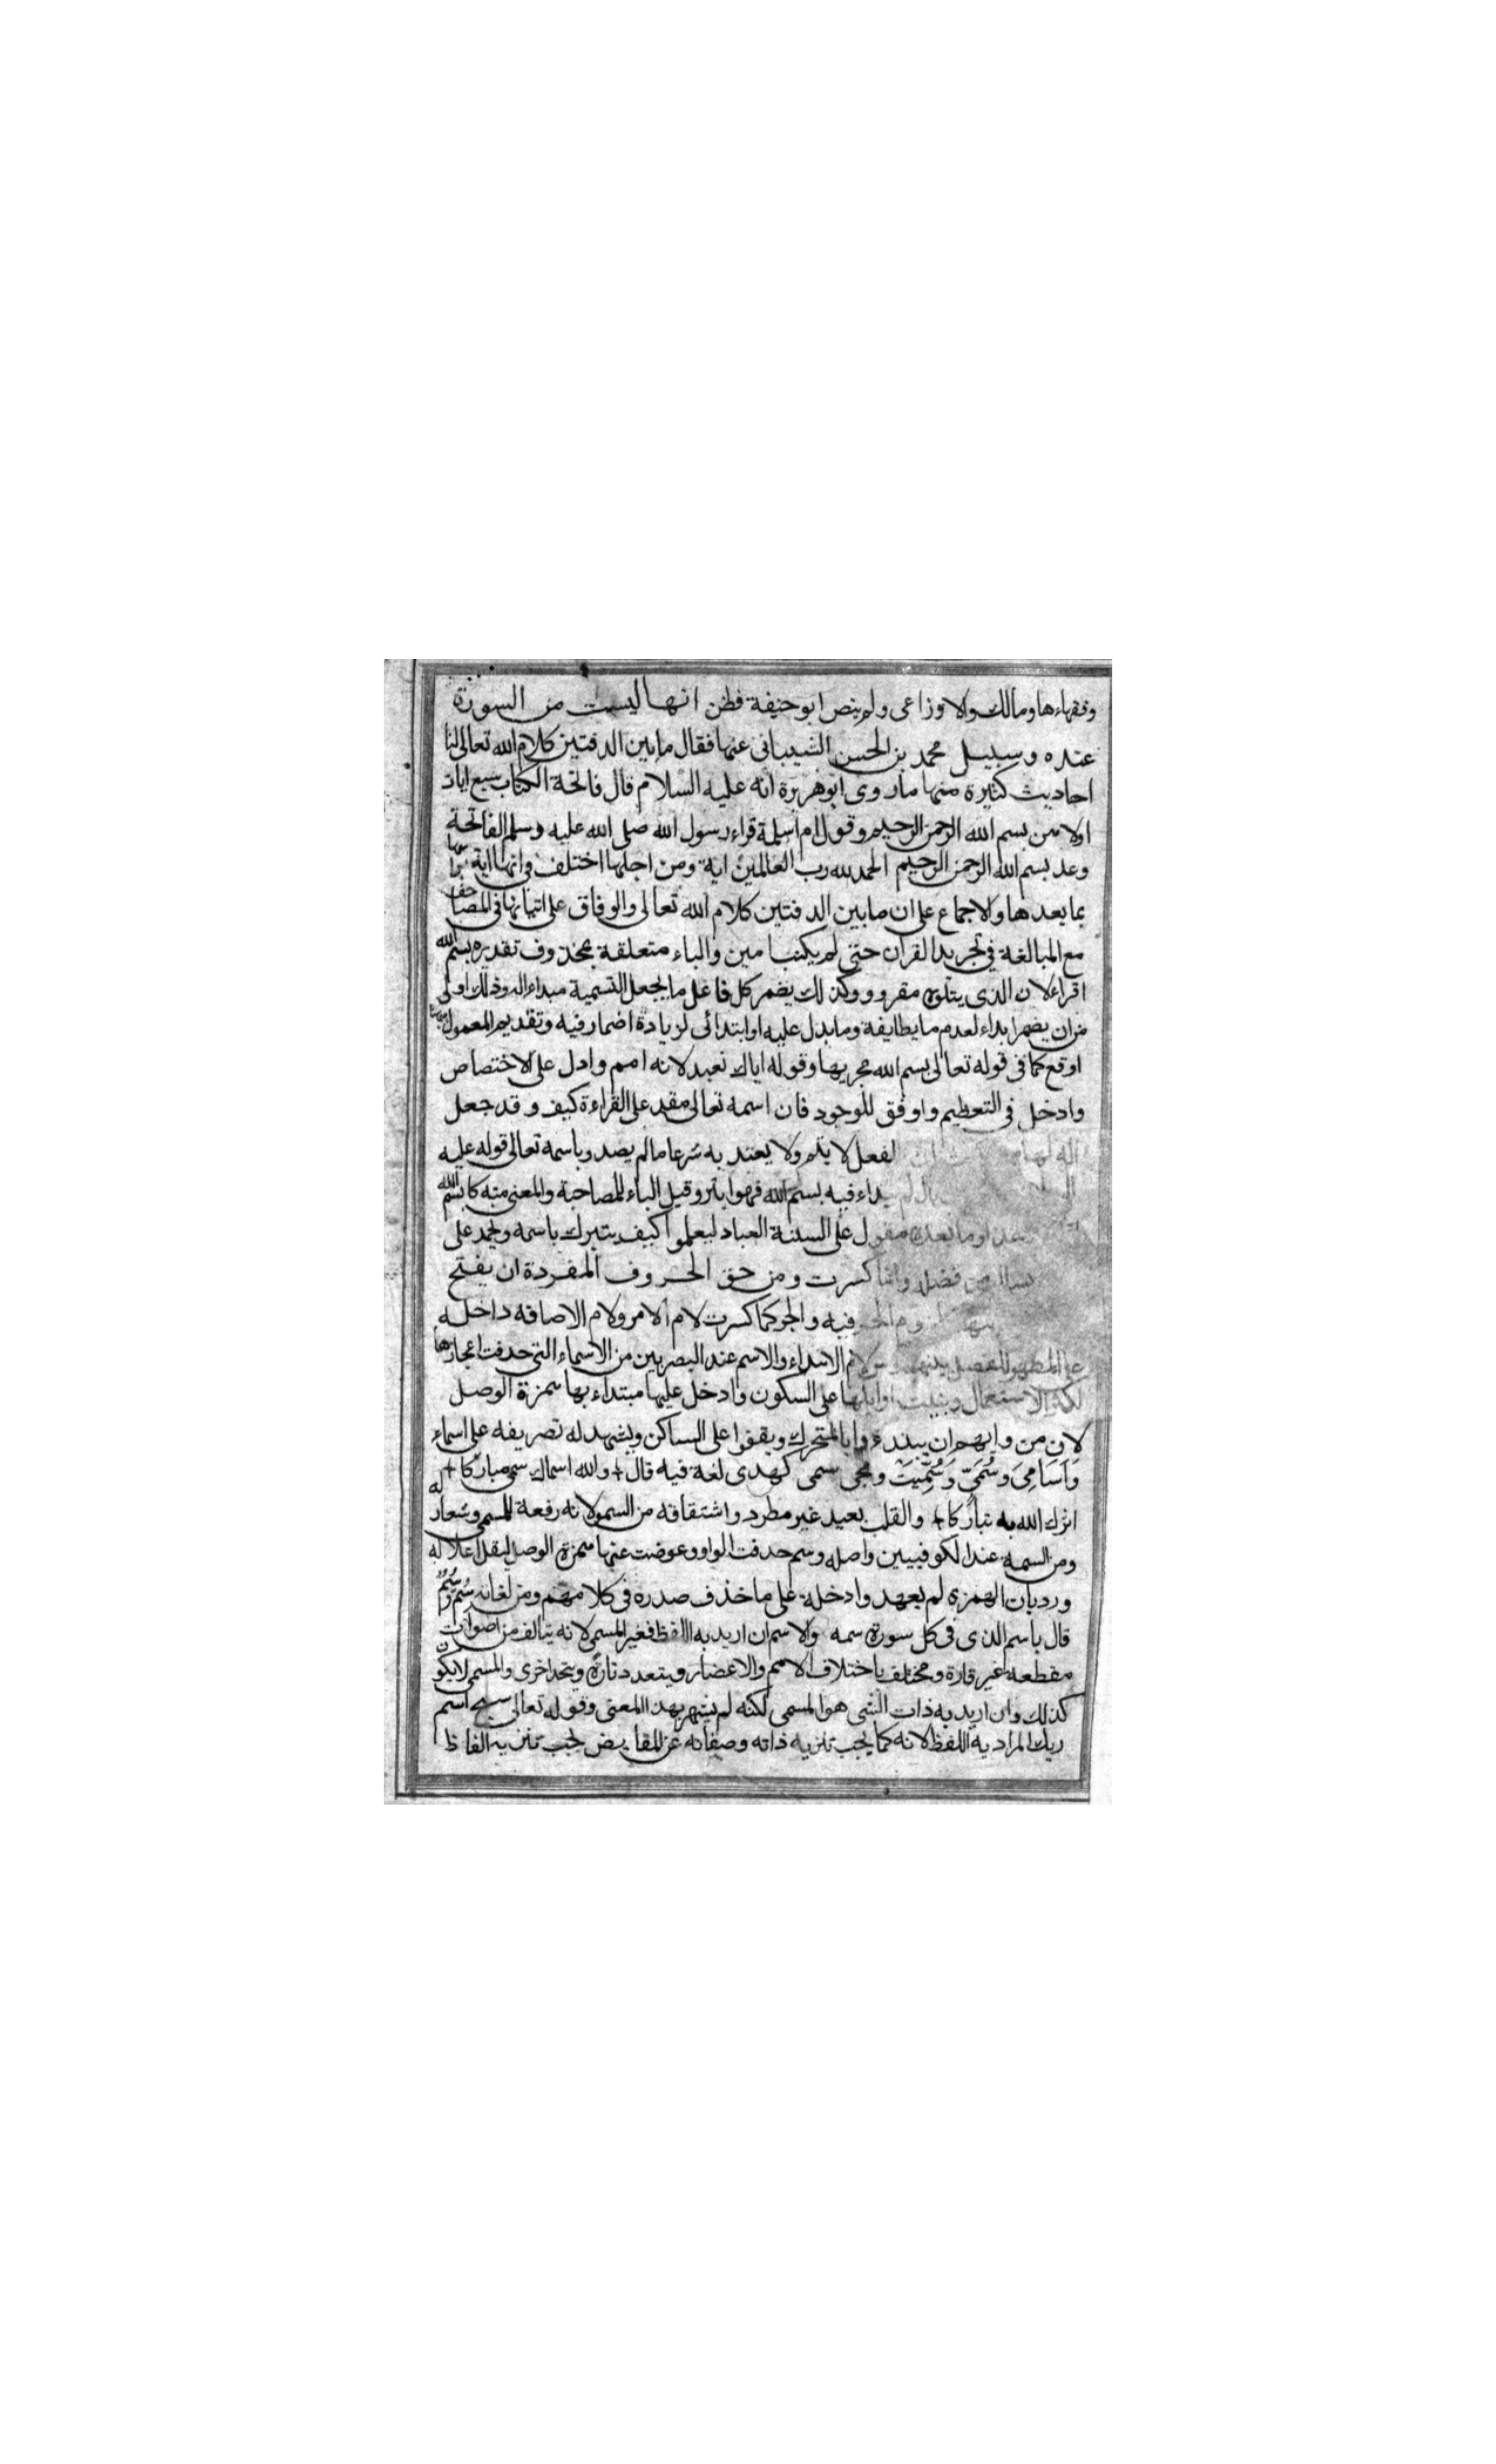 وفقهاءها ومالك والاوزاعى ولم ينص ابو حنيفة فظن انها ليست من السورة
عنده وسبيل محمد بن الحسن الشيبانى عنها فقال ما بين الدفتين كلام الله تعالى لنا
احاديث كثيرة منها ما روى ابو هريرة انه عليه السلام قال فاتحة الكتاب سبع ايات
اولا من بسم الله الرحمن الرحيم وقول ام سلمة قراء رسول الله صلى الله عليه وسلم الفاتحة
وعد بسم الله الرحمن الرحيم الحمد لله رب العالمين اية ومن اجلها اختلف فى انها اية
بما بعدها والاجماع على ان ما بين الدفتين كلام الله تعالى والوفاق على اثباتها فى المصاحف
مع المبالغة فى تجريد القران حتى لم يكتب امين والباء متعلقة بمحذوف تقديره بسم الله
اقراء لان الذى يتلوه مقرو وكذلك يضمر كل فاعل ما يجعل التسمية مبداء له وذلك اولى
من ان يضمر ابداء لعدم ما يطابقة وما يدل عليه او ابتدائى لزيادة اضمار فيه وتقديم المعمول
اوقع كما فى قوله تعالى بسم الله مجريها وقوله اياك نعبد لانه اهم وادل على الاختصاص
وادخل فى التعظيم واوفق للوجود فان اسمه تعالى مقدم على القراءة كيف وقد جعل
الة لها ان الفعل لا يتم ولا يعتد به شرعا ما لم يصدر باسمه تعالى قوله عليه
بال لم يبداء فيه بسم الله فهو ابتر وقيل الباء للمصاحبة والمعنى متبركا بسم الله
وما بعده مقول على السنة العباد ليعلموا كيف يتبرك باسمه ويحمد على
يسال من فضله وانما كسرت ومن حق الحروف المفردة ان يفتح
الحرفيه والجر كما كسرت لام الامر ولام الاضافة داخله
على المظهر للفصل بينهما وبين لام الابتداء والاسم عند البصريين من الاسماء التى حذفت اعجازها
لكثرة الاستعمال وبنيت اوايلها على السكون وادخل عليها مبتداء بها همزة الوصل
لان من دابهم ان يبتدءوا بالمتحرك ويقفوا على الساكن ويشهد له تصريفه على اسماء
وَاَسَامِىَ وسُمَىّ وَسُمِّيتَ ومجى سمى كهدى لغة فيه قال والله اسماك سمى مباركا
اثرك الله به تباركا والقلب بعيد غير مطرد واشتقاقه من السمو لانه رفعة للمسمى وشعار له
ومن السمه عند الكوفيين واصله وسم حدفت الواو وعوضت عنها همزة الوصل ليقل اعلاله
ورد بان الهمزه لم يعهد وادخلة على ما خذف صدره فى كلامهم ومن لغاته سُم وسِم
قال باسم الذى فى كل سورة سمه والاسم ان اريد به اللفظ فغير المسمى لانه يتالف من اصوات
مقطعه غير قارة ومختلف باختلاف الامم والاعصار ويتعدد تارة ويتحد اخرى والمسمى لا يكون
كذلك وان اريد به ذات الشى هو المسمى لكنه لم يشهر بهذا المعنى وقوله تعالى سبح اسم
ربك المراد به اللفظ لانه كما يجب تنزيه ذاته وصفاته عن النقايص يجب تنزيه الفاظ